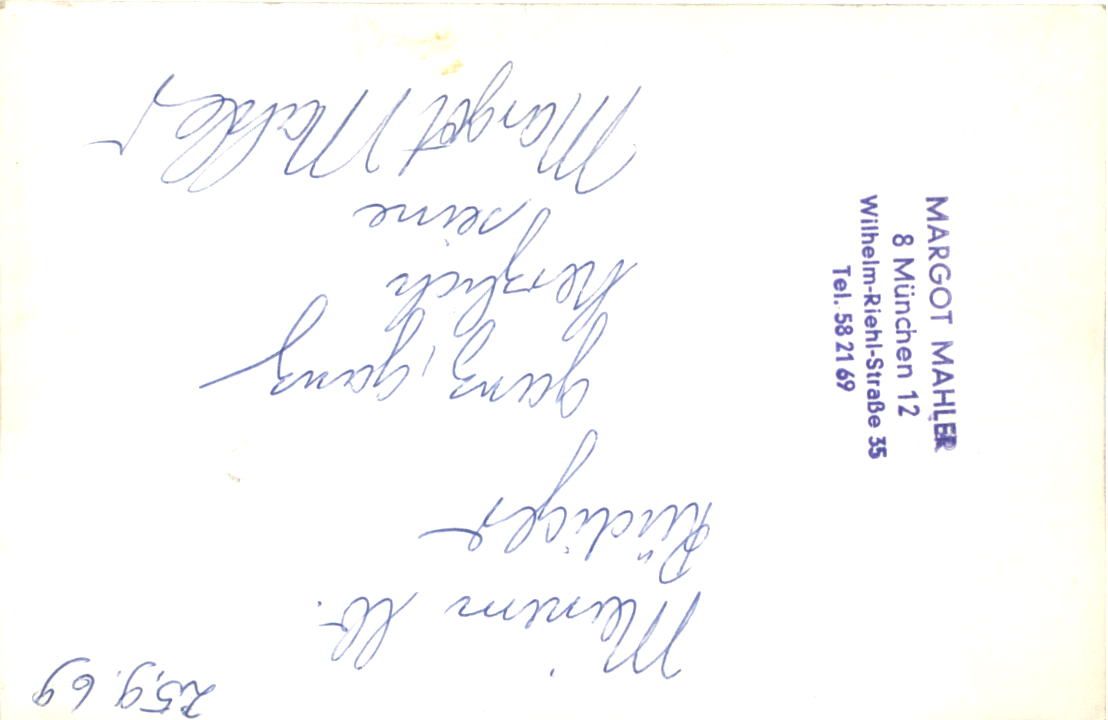 25.9.69
Meinem lb.
Rüdiger
ganz, ganz
herzlich
seine
Margot Mahler
MARGOT MAHLER
8 München 12
Wilhelm-Riehl-Straße 35
Tel. 58 21 69